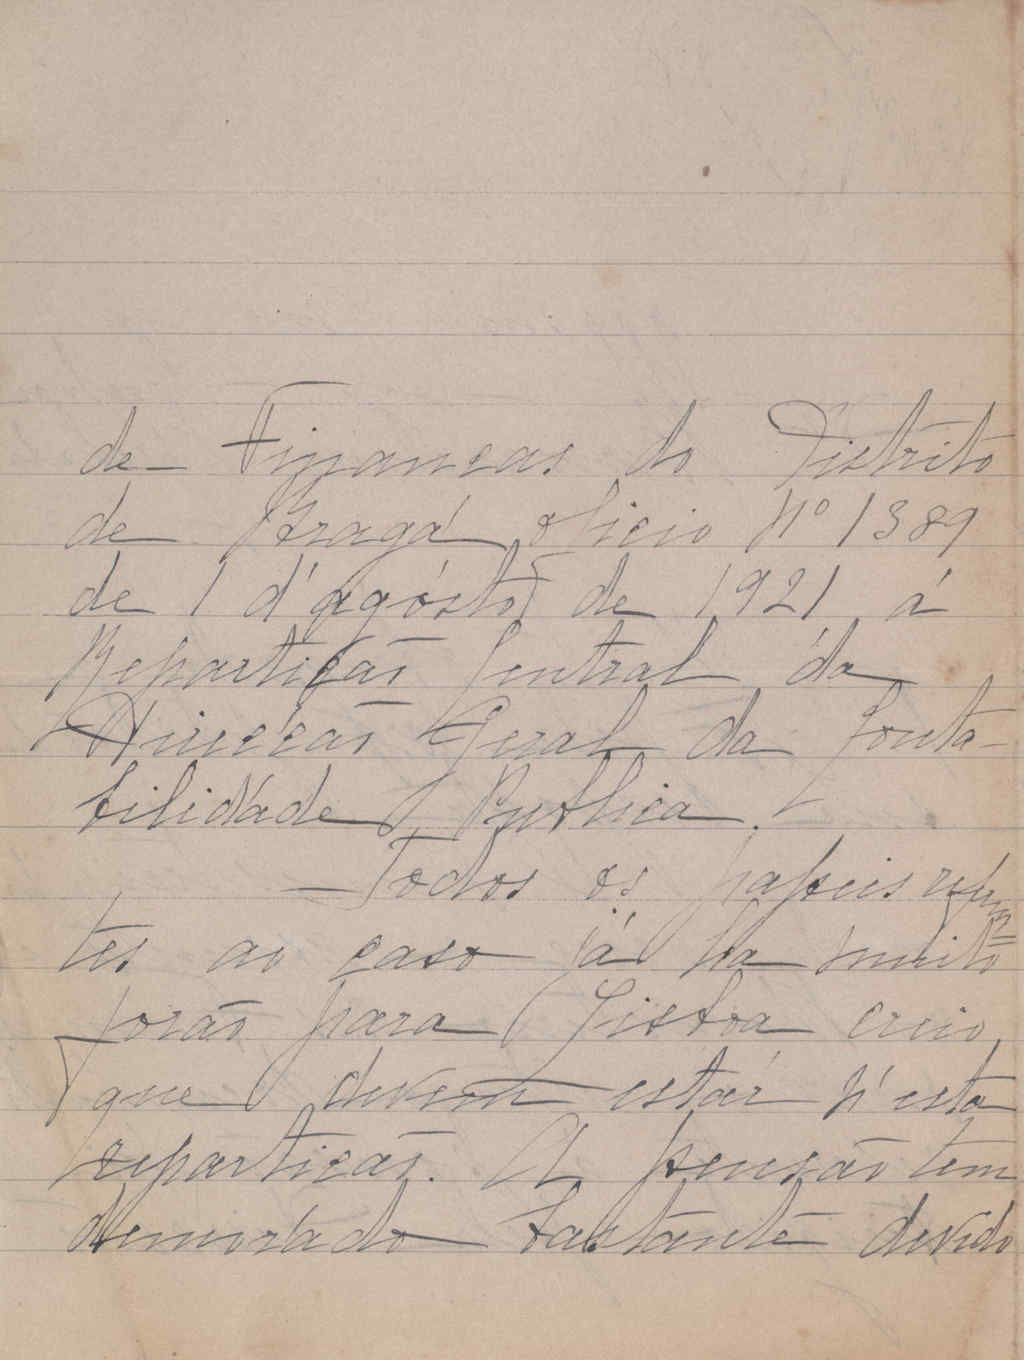 de Finanças do Distrito
de Braga oficio Nº 1389
de 1 d'agósto de 1921 á
Repartição Central da
Direcção Geral da Conta-
bilidade Publica.
— Todos os papeis referen=
tes ao caso já ha muito
forão para Lisboa creio
que devem estár n'esta
repartição. A pensão tem
demorado bastante devido